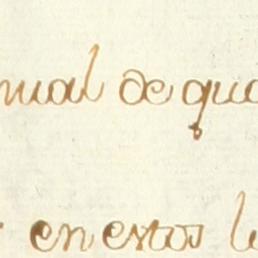 nual de qua
en estos l